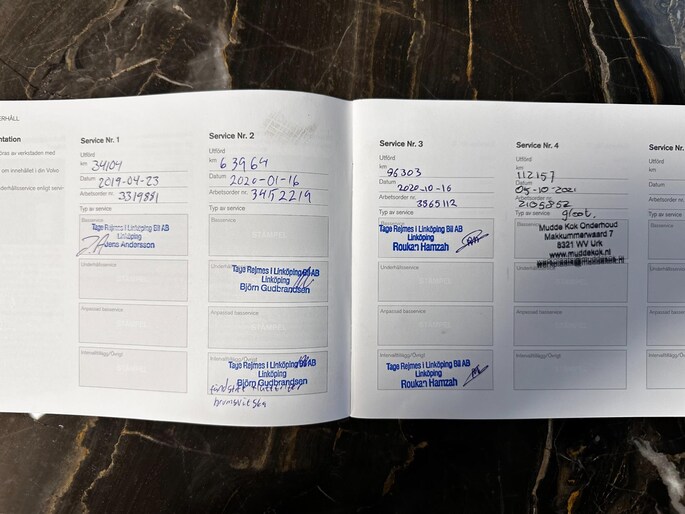 ERHÅLL
ntation
öras av verkstaden med
om innehållet i din Volvo
derhållsservice enligt servi-
Service Nr. 1
Utförd
km 34104
Datum 2019-04-23
Arbetsorder nr. 3319881
Typ av service
Basservice
Tage Rejmes i Linköping Bil AB
Linköping
Jens Andersson
Underhållsservice
Anpassad basservice
Intervalltillägg/Övrigt
Service Nr. 2
Utförd
km 63964
Datum 2020-01-16
Arbetsorder nr. 3452219
Typ av service
Basservice
Underhållsservice
Tage Rejmes i Linköping Bil AB
Linköping
Björn Gudbrandsen
Anpassad basservice
Intervalltillägg/Övrigt
Tage Rejmes i Linköping Bil AB
Linköping
Björn Gudbrandsen
bromsvätska
Service Nr. 3
Utförd
km 96303
Datum 2020-10-16
Arbetsorder nr. 3565112
Typ av service
Basservice
Tage Rejmes i Linköping Bil AB
Linköping
Roukan Hamzah
Underhållsservice
Anpassad basservice
Intervalltillägg/Övrigt
Tage Rejmes i Linköping Bil AB
Linköping
Roukan Hamzah
Service Nr. 4
Utförd
km 112157
Datum 05-10-2021
Arbetsorder nr. 2105852
Typ av service groot.
Basservice
Mudde Kok Onderhoud
Makkummerwaard 7
8321 WV Urk
www.muddekok.nl
Underhållsservice
Anpassad basservice
Intervalltillägg/Övrigt
Service
Utförd
km
Datum
Arbetsorder
Typ av service
Basservice
Underhållsservice
Anpassad
Intervalltillägg